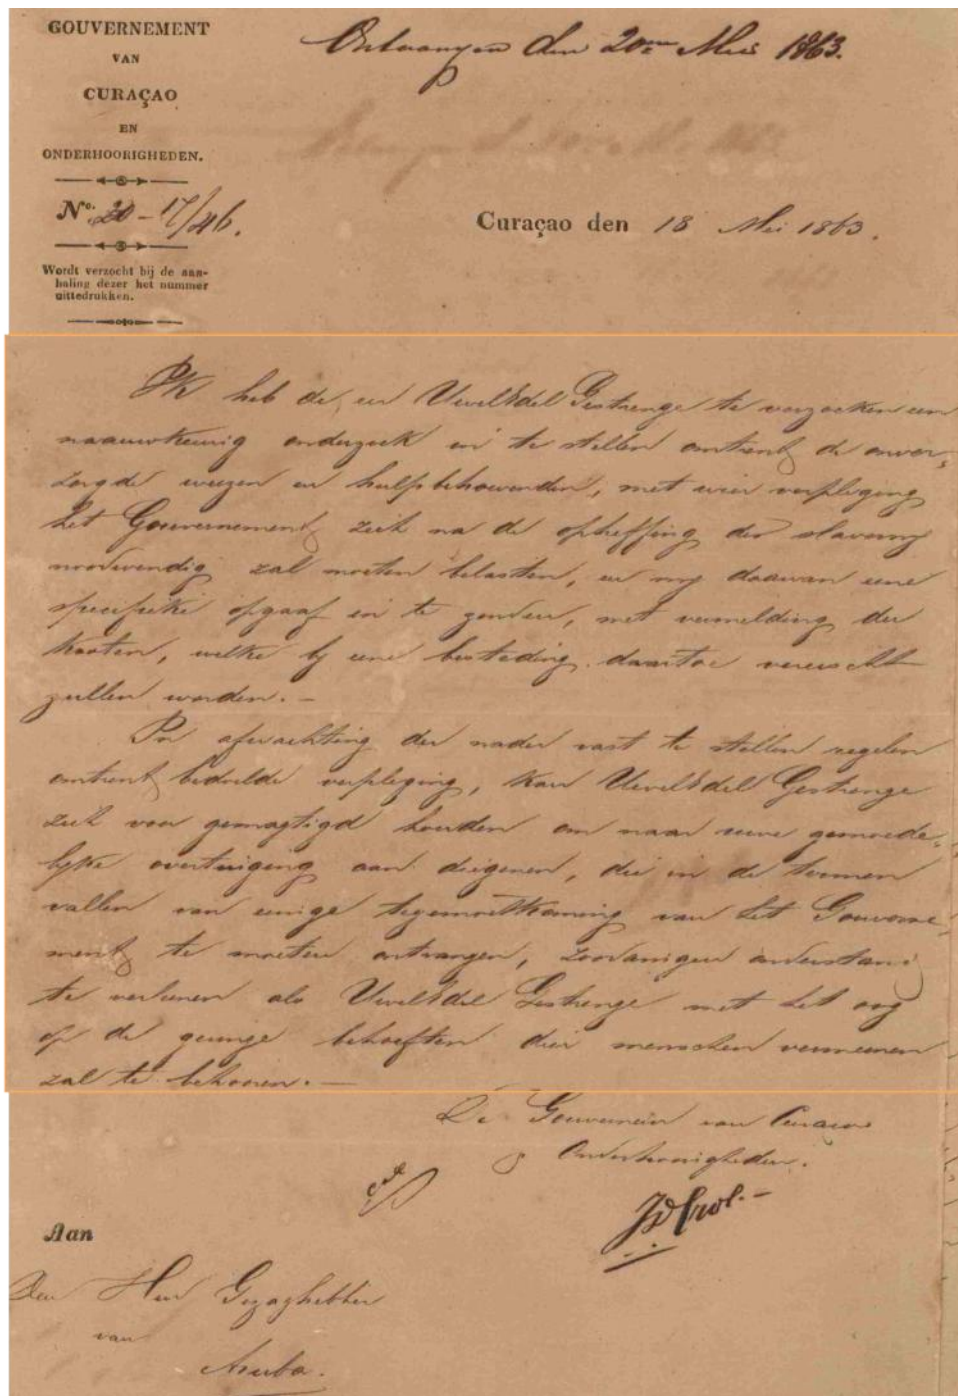 GOUVERNEMENT
VAN
CURAÇAO
EN
ONDERHOORIGHEDEN.
Ontvangen den 20en Mei 1863.
No. 20-17/46.
Curaçao den 18 Mei 1863.
Wordt verzocht bij de aan-
haling dezer het nummer
uittedrukken.
Ik heb de eer UwelEdel Gestrenge te verzoeken een
naauwkeurig onderzoek in te stellen omtrent de onver-
zorgde weezen en hulpbehoevenden, met wier verpleging
het Gouvernement zich na de opheffing der slaverny
noodwendig zal moeten belasten, en my daarvan eene
specifieke opgaaf in te zenden, met vermelding der
kosten, welke by eene besteding daartoe vereischt
zullen worden. –
In afwachting der nader vast te stellen regelen
omtrent bedoelde verpleging, kan UwelEdel Gestrenge
zich voor gemagtigd houden om naar uwe gemoede-
lyke overtuiging aan diegenen, die in de termen
vallen van eenige tegemoetkoming van het Gouverne-
ment te moeten ontvangen, zoodanigen onderstand
te verleenen als UwelEdel Gestrenge met het oog
op de geringe behoeften dier menschen vermeenen
zal te behooren. –
De Gouverneur van Curaçao
Onderhoorigheden.
Aan
Den Heer Gezaghebber
van
Aruba.